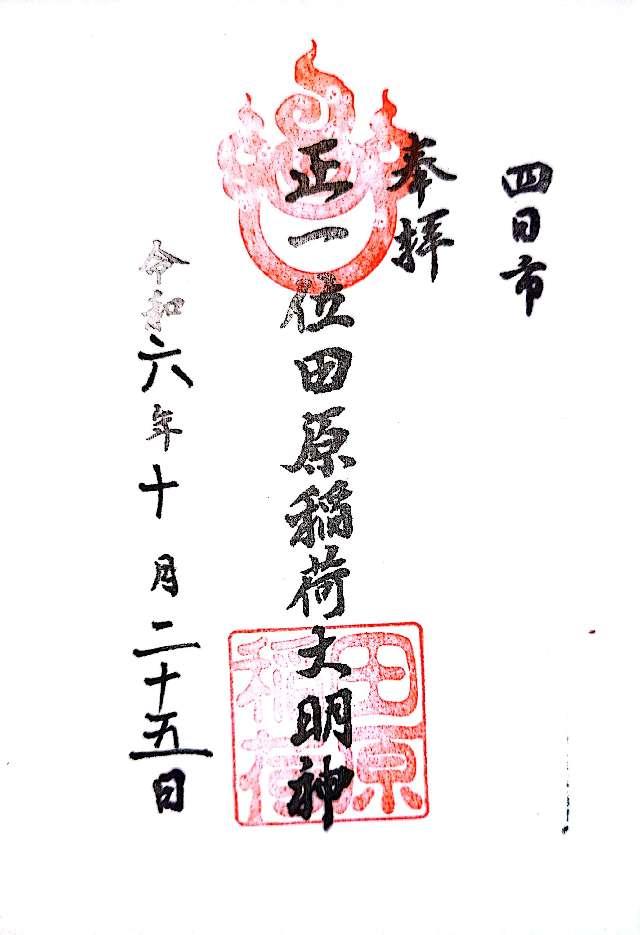 四日市
奉拝
正一位田原稲荷大明神
田原
稲荷
令和六年十月二十五日